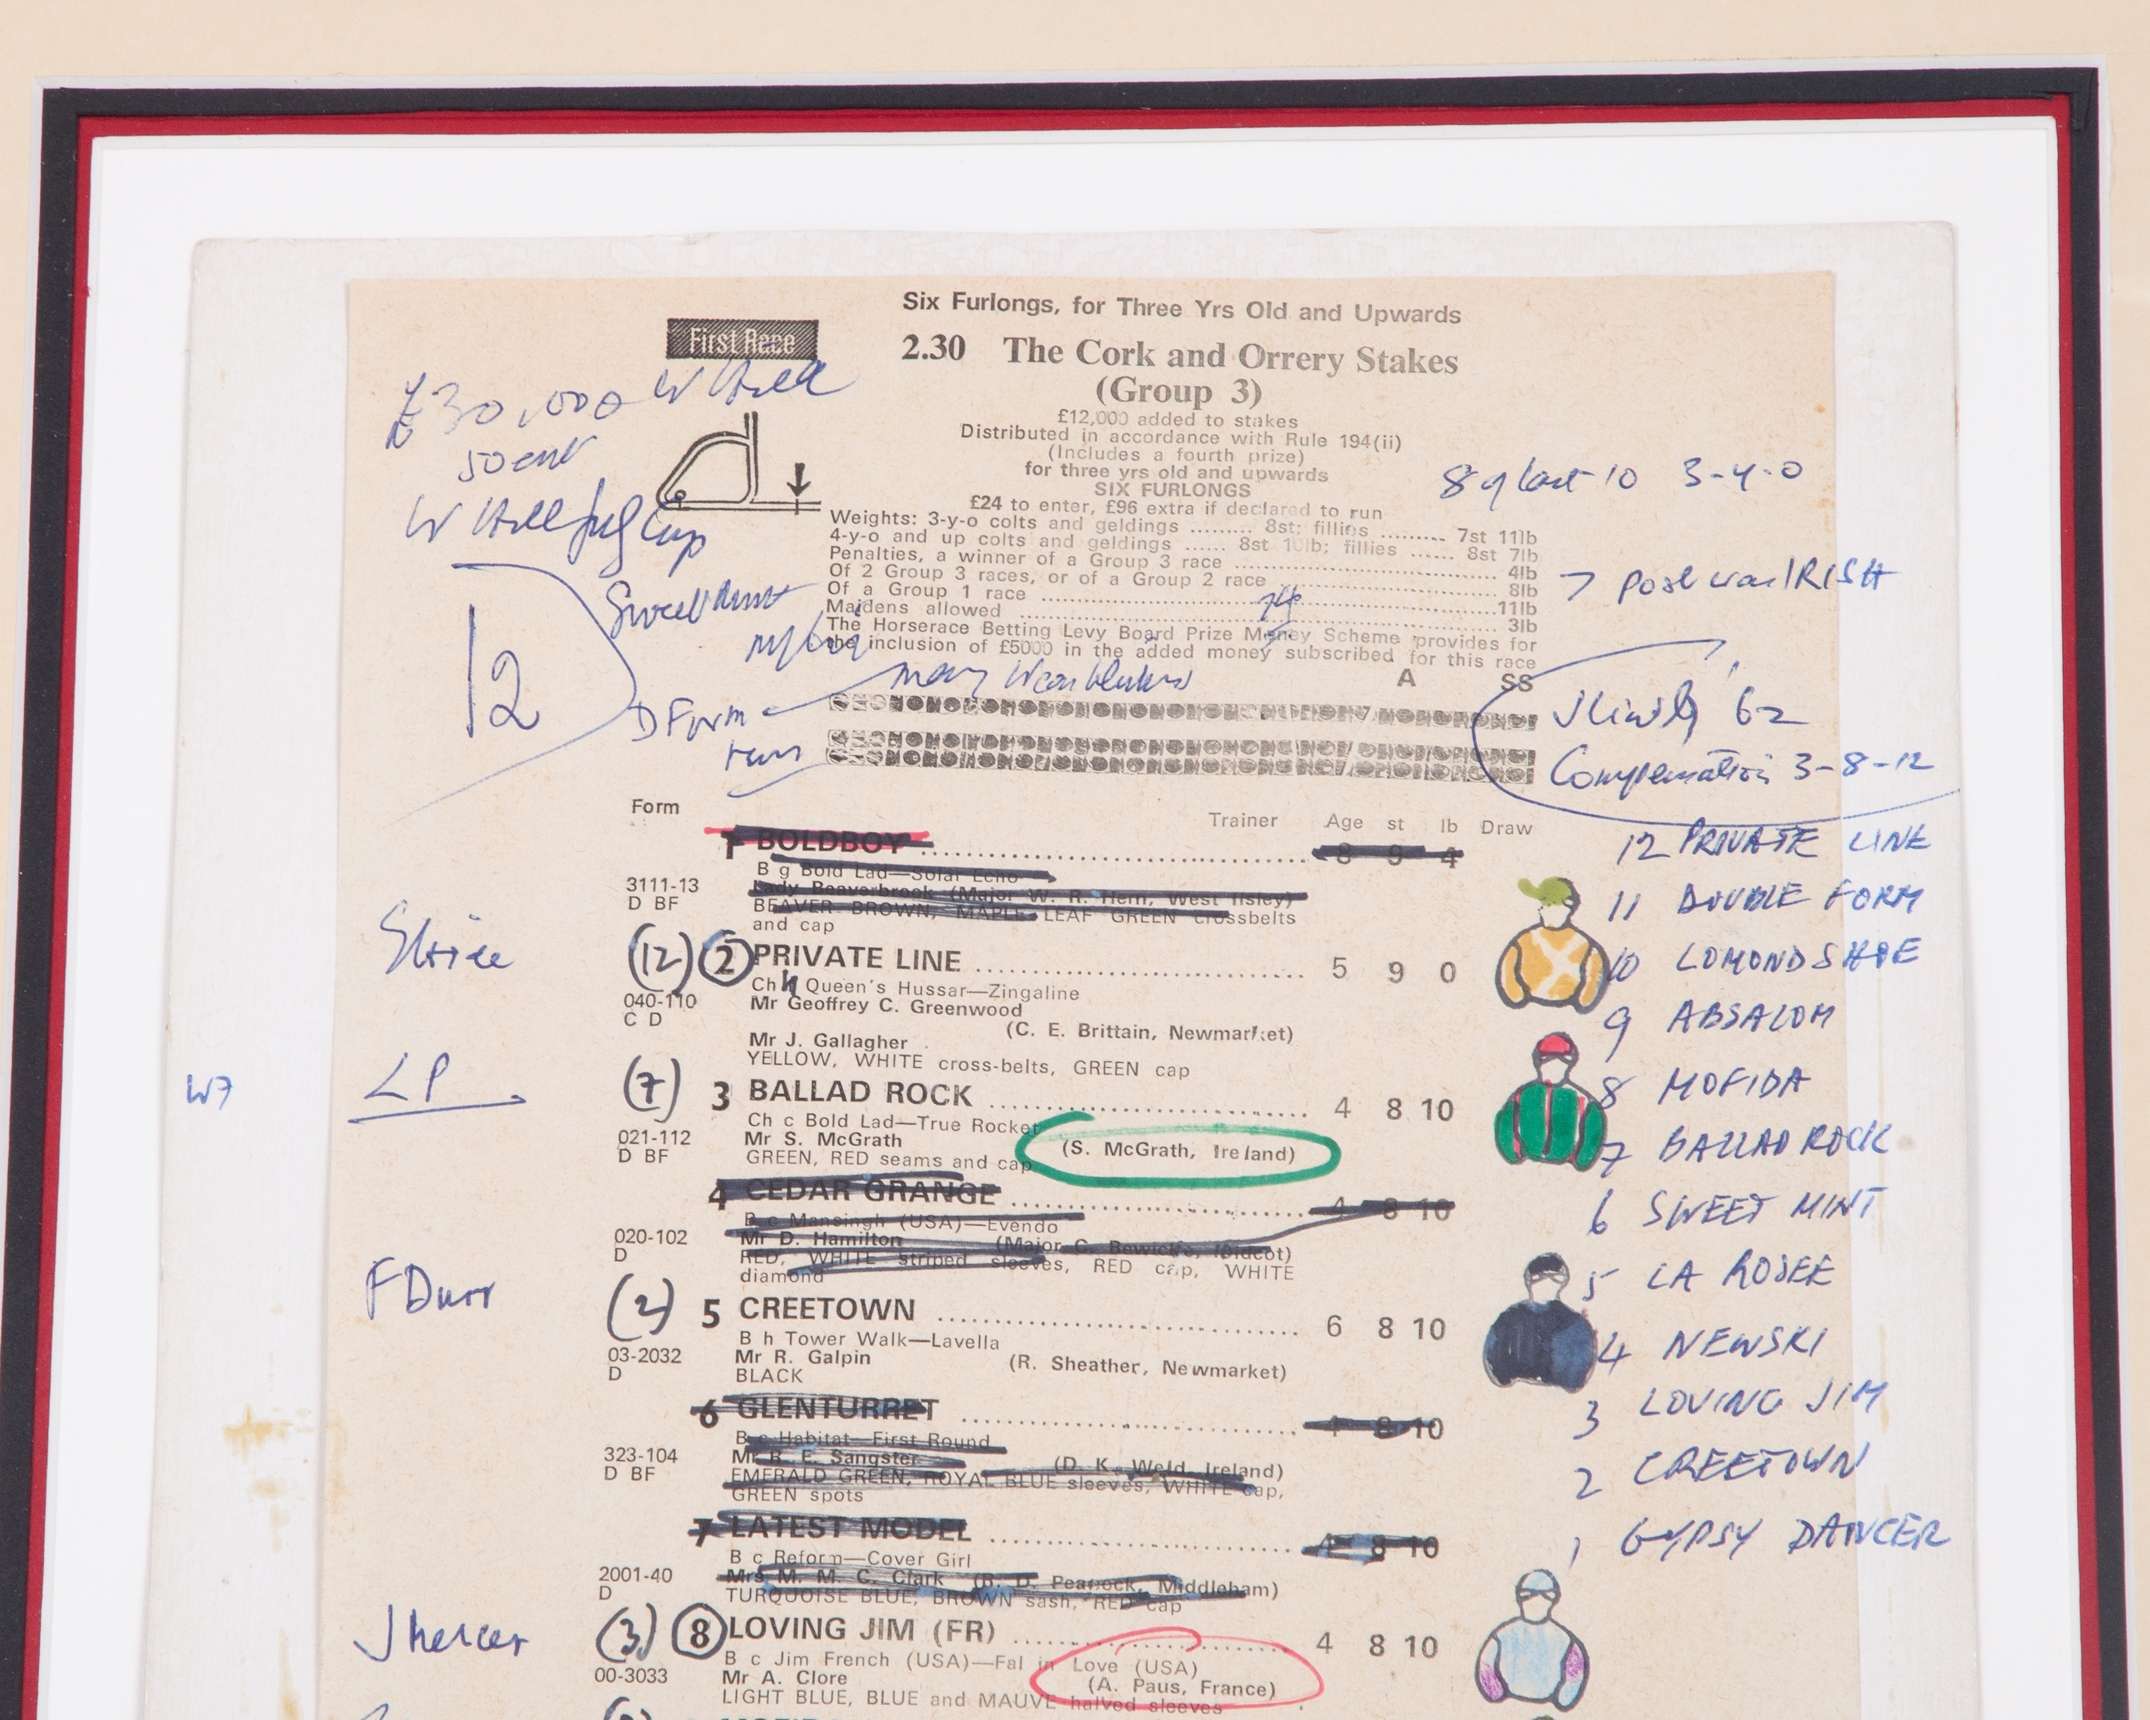 Six Furlongs, for Three Yrs Old and Upwards
First Race
2.30 The Cork and Orrery Stakes
(Group 3)
£12,000 added to stakes
Distributed in accordance with Rule 194(ii)
(Includes a fourth prize)
for three yrs old and upwards
SIX FURLONGS
£24 to enter, £96 extra if declared to run
Weights: 3-y-o colts and geldings ......... 8st; fillies ......... 7st 11lb
4-y-o and up colts and geldings ...... 8st 10lb; fillies ...... 8st 7lb
Penalties, a winner of a Group 3 race ........ 4lb
Of 2 Group 3 races, or of a Group 2 race ........ 8lb
Of a Group 1 race ........ 11lb
Maidens allowed ........ 3lb
The Horserace Betting Levy Board Prize Money Scheme provides for
the inclusion of £5000 in the added money subscribed for this race
A SS
£30,000 W Hill
W Hill
Cup
12
Sweet Mint
D Form
runs
may wear blinkers
8 of last 10 3-y-o
Post war IRISH
62
Compensation 3-8-12
Form Trainer Age st lb Draw
1 BOLDBOY ........ 8 9 4
B g Bold Lad—Solar Echo
3111-13 Lady Beaverbrook (Major W. R. Hern, West Ilsley)
D BF BEAVER BROWN, MAPLE LEAF GREEN crossbelts
and cap
(12) 2 PRIVATE LINE ........ 5 9 0
Ch h Queen's Hussar—Zingaline
040-110 Mr Geoffrey C. Greenwood
C D (C. E. Brittain, Newmarket)
Mr J. Gallagher
YELLOW, WHITE cross-belts, GREEN cap
W7 LP (7) 3 BALLAD ROCK ........ 4 8 10
Ch c Bold Lad—True Rocket
021-112 Mr S. McGrath (S. McGrath, Ireland)
D BF GREEN, RED seams and cap
4 CEDAR GRANGE ........ 4 8 10
B c Mansingh (USA)—Evendo
020-102 Mr D. Hamilton (Major C. Bewicke, Didcot)
D RED, WHITE striped sleeves, RED cap, WHITE
diamond
F Durr (2) 5 CREETOWN ........ 6 8 10
B h Tower Walk—Lavella
03-2032 Mr R. Galpin (R. Sheather, Newmarket)
D BLACK
6 GLENTURRET ........ 4 8 10
B c Habitat—First Round
323-104 Mr R. E. Sangster (D. K. Weld, Ireland)
D BF EMERALD GREEN, ROYAL BLUE sleeves, WHITE cap,
GREEN spots
7 LATEST MODEL ........ 4 8 10
B c Reform—Cover Girl
2001-40 Mrs M. M. C. Clark (R. D. Peacock, Middleham)
D TURQUOISE BLUE, BROWN sash, RED cap
J Mercer (3) 8 LOVING JIM (FR) ........ 4 8 10
B c Jim French (USA)—Fal in Love (USA)
00-3033 Mr A. Clore (A. Paus, France)
LIGHT BLUE, BLUE and MAUVE halved sleeves
12 PRIVATE LINE
11 DOUBLE FORM
10 LOMOND SHOE
9 ABSALOM
8 MOFIDA
7 BALLAD ROCK
6 SWEET MINT
5 LA ROSEE
4 NEWSKI
3 LOVING JIM
2 CREETOWN
1 GYPSY DANCER